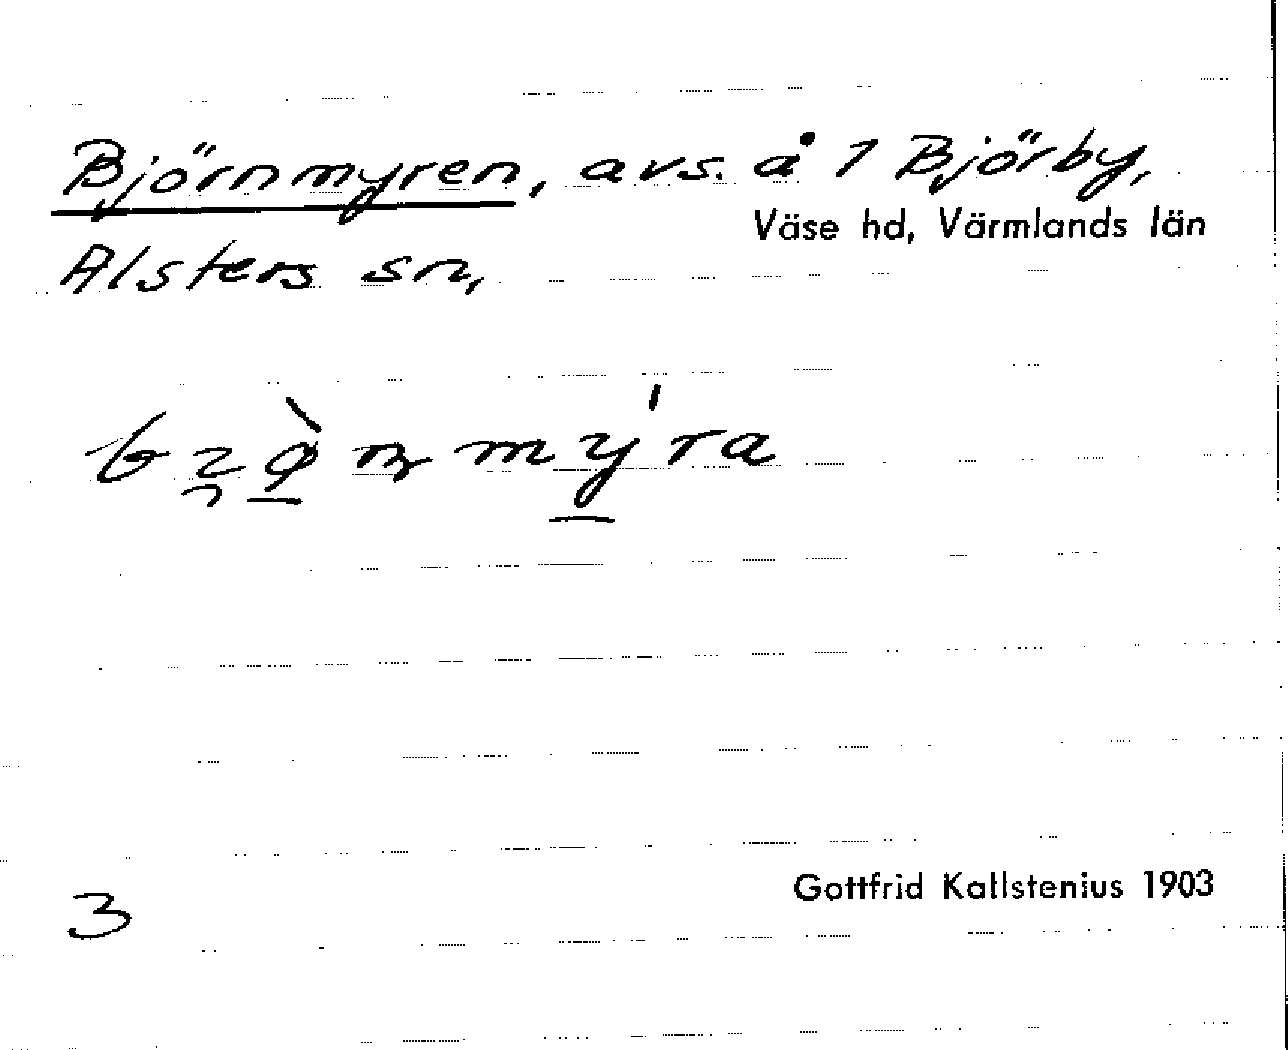 Björnmyren, avs. å 1 Björby,
Väse hd, Värmlands län
Alsters sn,
Gottfrid Kallstenius 1903
3